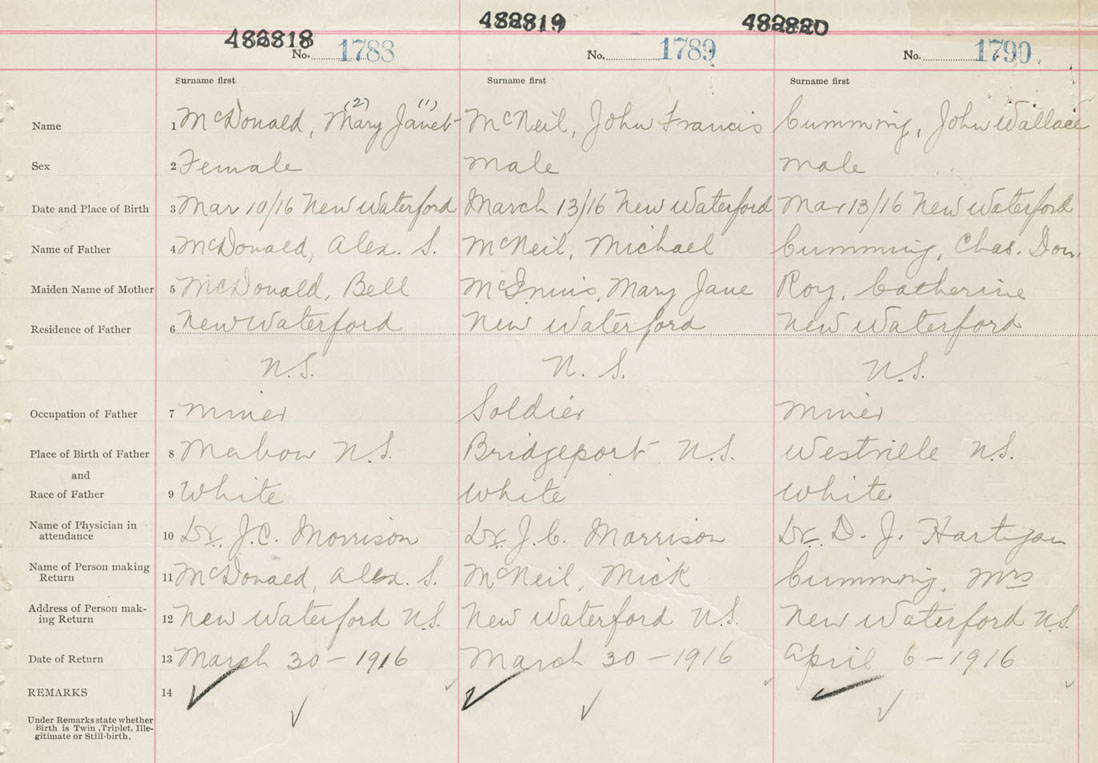 482818 482819 482820
No. 1788 No. 1789 No. 1790
Surname first Surname first Surname first
(2) (1)
Name 1 McDonald, Mary Janet McNeil, John Francis Cumming, John Wallace
Sex 2 Female male male
Date and Place of Birth 3 Mar 10/16 New Waterford March 13/16 New Waterford Mar 13/16 New Waterford
Name of Father 4 McDonald, Alex. S. McNeil, Michael Cumming, Chas. Don.
Maiden Name of Mother 5 McDonald, Bell McInnis, Mary Jane Roy, Catherine
Residence of Father 6 New Waterford New Waterford New Waterford
N.S. N. S. N.S.
Occupation of Father 7 miner Soldier miner
Place of Birth of Father 8 Mabou N.S. Bridgeport N.S. Westville N.S.
and
Race of Father 9 White White White
Name of Physician in
attendance 10 Dr. J.C. Morrison Dr. J.C. Morrison Dr. D. J. Hartigan
Name of Person making
Return 11 McDonald, Alex. S. McNeil, Mick Cumming, Mrs
Address of Person mak-
ing Return 12 New Waterford N.S. New Waterford N.S. New Waterford N.S.
Date of Return 13 March 30-1916 March 30-1916 April 6-1916
REMARKS 14
Under Remarks state whether
Birth is Twin, Triplet, Ille-
gitimate or Still-birth.